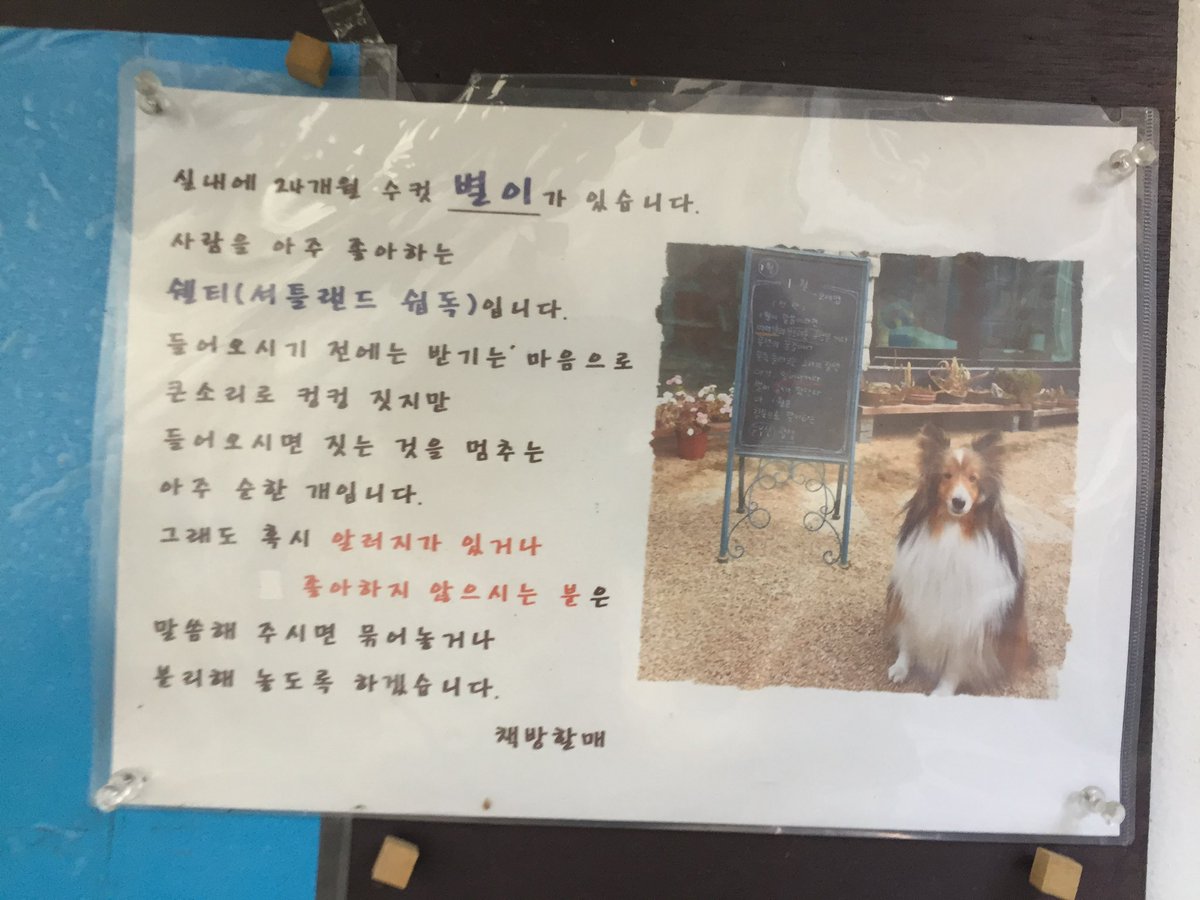 실내에 24개월 수컷 별이가 있습니다.
사람을 아주 좋아하는
쉘티(셔틀랜드 쉽독)입니다.
들어오시기 전에는 반기는 마음으로
큰소리로 컹컹 짖지만
들어오시면 짖는 것을 멈추는
아주 순한 개입니다.
그래도 혹시 알러지가 있거나
좋아하지 않으시는 분은
말씀해 주시면 묶어놓거나
분리해 놓도록 하겠습니다.
책방할매
1월